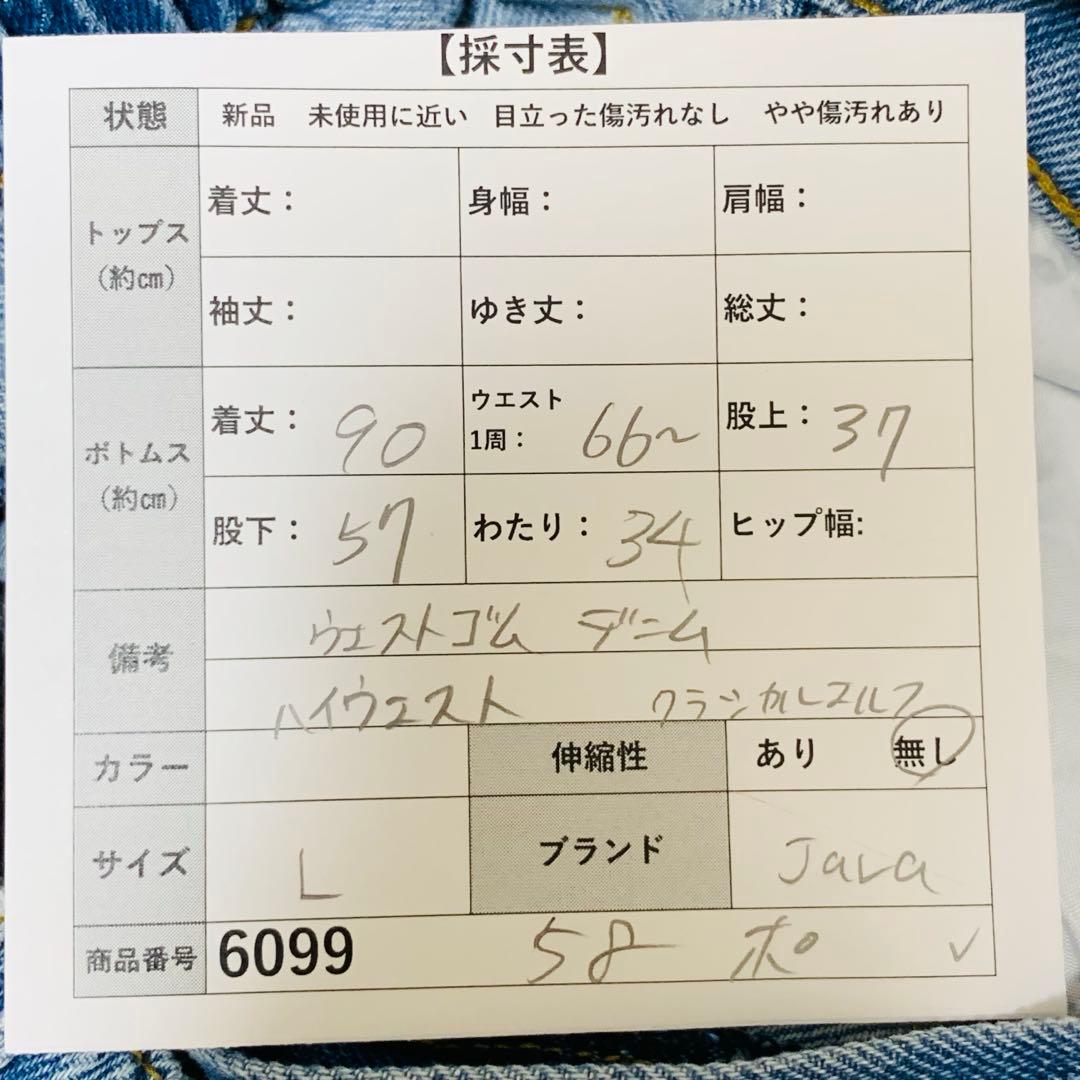 【採寸表】
状態 新品 未使用に近い 目立った傷汚れなし やや傷汚れあり
トップス（約㎝） 着丈： 身幅： 肩幅：
袖丈： ゆき丈： 総丈：
ボトムス（約㎝） 着丈：90 ウエスト1周：66~ 股上：37
股下：57 わたり：34 ヒップ幅:
備考 ウエストゴム デニム
ハイウエスト クラシカルエルフ
カラー 伸縮性 あり 無し
サイズ L ブランド Java
商品番号 6099 58 ポ ✓